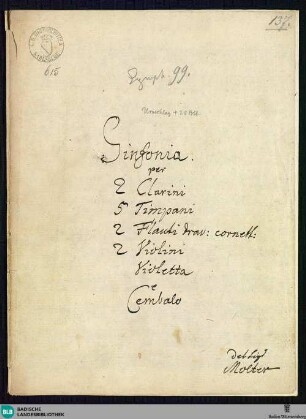 137.
616
Symph. 99.
Sinfonia.
per
2 Clarini
5 Timpani
2 Flauti trav: cornett:
2 Violini
Violetta
e
Cembalo
del Sigr
Molter
BLB BADISCHE
LANDESBIBLIOTHEK
Baden-Württemberg